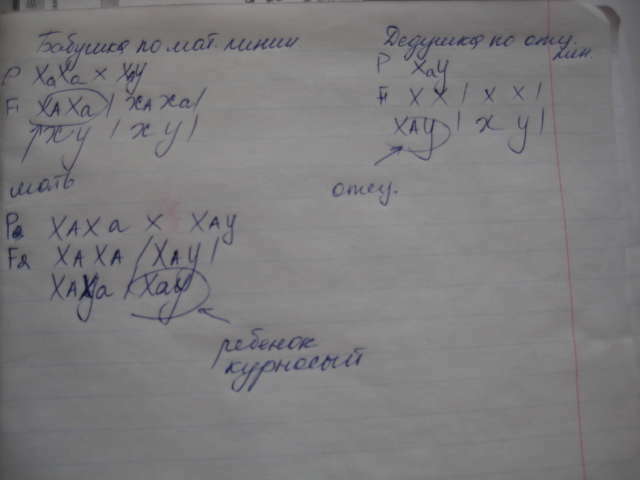 Бабушка по мат. линии
P XaXa × XAy
F1 XAXa | XAXa |
Xy | Xy |
мать
Дедушка по отц. лин.
P Xay
F1 X X | X X |
XAy | X y |
отец.
P2 XAXa × XAy
F2 XAXA | XAy |
XAXa | Xay
ребенок
курносый